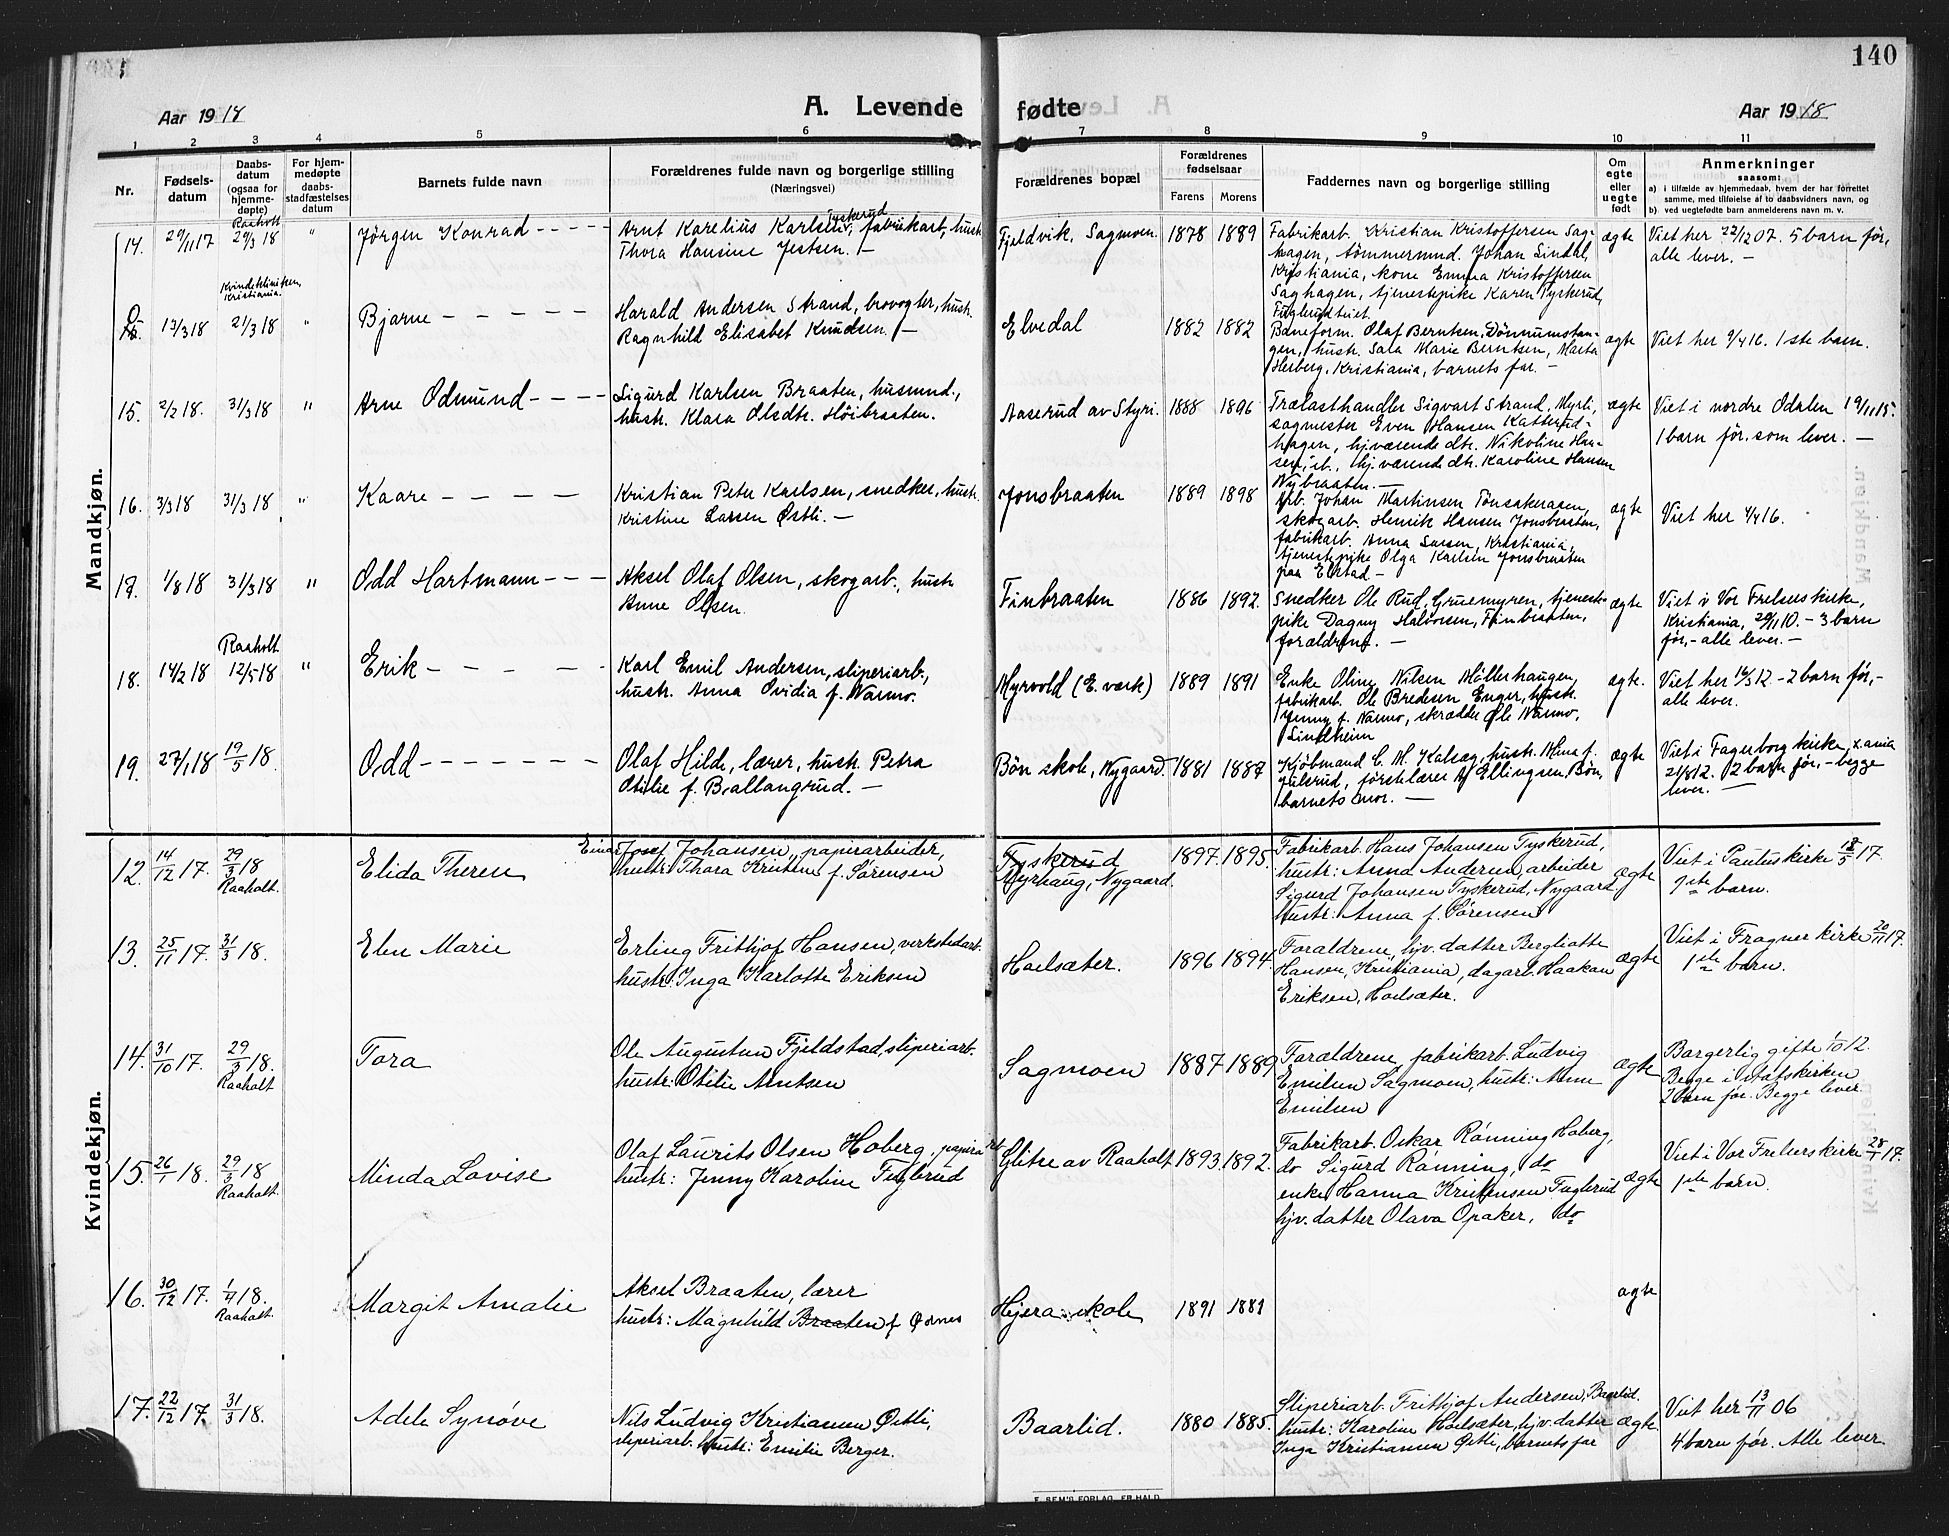 140
Aar 1918
A. Levende fødte
Aar 1918
1 2 3 4 5 6 7 8 9 10 11
Nr.
Fødsels-
datum
Daabs-
datum
(ogsaa for
hjemme-
døpte)
For hjem-
medøpte
daabs-
stadfæstelses
datum
Barnets fulde navn
Forældrenes fulde navn og borgerlige stilling
(Næringsvei)
Forældrenes bopæl
Forældrenes
fødselsaar
Farens Morens
Faddernes navn og borgerlige stilling
Om
egte
eller
uegte
født
Anmerkninger
saasom:
a) i tilfælde av hjemmedaab, hvem der har forrettet
samme, med tilføielse af to daabsvidners navn, og
b) ved uegtefødte barn anmelderens navn m. v.
Mandkjøn.
14. 29/11 17 Raaholt 29/3 18 "
Jørgen Konrad - - - -
Arnt Karelius Karlsen Tyskerud, fabrikarb., hust.
Thora Hansine Jestsen. -
Fjeldvik, Sagmoen. 1878 1889
Fabrikarb. Kristian Kristoffersen Sag-
hagen, tømmermnd. Johan Lindal,
Kristiania, kone Emma Kristoffersen
Saghagen, tjenestepike Karen Tyskerud,
Fuglerudteiet.
ægte
Viet her 22/12 07. 5 barn før,
alle lever. -
13/3 18 Kvindeklinikken, Kristiania. 21/3 18 "
Bjarne - - - - -
Harald Andersen Strand, brovogter, hust.
Ragnhild Elisabet Knudsen. -
Elvedal 1882 1882
Baneform. Olaf Berntsen, Dønnumstan-
gen, hustr. Sara Marie Berntsen, Marta
Herberg, Kristiania, barnets far. -
ægte
Viet her 9/4 16. 1ste barn.
15. 2/2 18. 31/3 18 "
Arne Odmund - - - -
Sigurd Karlsen Braaten, husmnd.,
hust. Klara Olsdtr. Høibraaten.
Aaserud av Styri. 1888 1896
Trælasthandler Sigvart Strand, Myrli,
sagmester Even Hansen Katterud-
hagen, hj.værende dtr. Nikoline Han-
sen, st., hj.værende dtr. Karoline Hansen
Nybraaten. -
ægte
Viet i nordre Odalen 19/11 15.
1 barn før. som lever. -
16. 3/3 18 31/3 18 "
Kaare - - - -
Kristian Peter Karlsen, snedker, hust.
Kristine Larsen Østli. -
Jonsbraaten 1889 1898
Arb. Johan Martinsen Tønsakeraasen,
skogarb. Henrik Hansen Jonsbraaten,
fabrikarb. Anna Larsen, Kristiania,
tjenestepike Olga Karlsen Jonsbraaten
paa Elstad -
ægte
Viet her 4/4 16.
17. 1/8 18 31/3 18 "
Odd Hartmann - - -
Aksel Olaf Olsen, skogarb., hust.
Anne Olsen.
Finbraaten 1886 1892.
Snedker Ole Rud, Gruemyren, tjeneste-
pike Dagny Halvorsen, Finbraaten,
forældrene. -
ægte
Viet i Vor Frelsers kirke,
Kristiania, 29/11 10. - 3 barn
før, - alle lever. -
18. 14/2 18 Raaholt 12/5 18 "
Erik - - - -
Karl Emil Andersen, sliperiarb.,
hustr. Anna Ovidia f. Narmo.
Myrvold (E. værk) 1889 1891
Enke Oline Nilsen Møllerhaugen,
fabrikarb. Ole Bredesen Enger, hustr.
Jenny f. Narmo, skrædder Ole Narmo,
Lindheim
ægte.
Viet her 16/3 12. - 2 barn før, -
alle lever.
19. 27/1 18 19/5 18.
Odd - - - - - - -
Olaf Hilde, lærer, hust. Petra
Otilie f. Ballangrud. -
Bøn skole, Nygaard. 1881 1887
Kjøbmand C. M. Kalsæg, hustr. Mina f.
Julsrud, førstelærer A. Ellingsen, Bøn,
barnets mor. -
ægte
Viet i Fagerborg kirke, x.ania
21/8 12. 2 barn før, - begge
lever. -
Kvindekjøn.
12. 14/12 17. 29/3 18 Raaholt.
Elida Theren
Einar Josef Johansen, papirarbeider,
hustr: Thora Kristine f. Sørensen
Tyskerud
Myrhaug, Nygaard. 1897. 1895.
Fabrikarb. Hans Johansen Tyskerud,
hustr: Anna Andersen, arbeider
Sigurd Johansen Tyskerud, Nygaard,
hustr: Anna f. Sørensen
ægte
Viet i Paulus kirke 18/5 17.
1ste barn.
13. 25/11 17. 31/3 18.
Elen Marie
Erling Frithjof Hansen, verkstedarb.
hustr: Inga Karlotte Eriksen
Hoelsæter. 1896 1894.
Forældrene, hjv. datter Bergliotte
Hansen, Kristiania, dagarb. Haakon
Eriksen, Hoelsæter.
ægte
Viet i Fragner kirke 20/11 17.
1ste barn.
14. 31/10 17. 29/3 18. Raaholt
Tora
Ole Augustun Fjeldstad, sliperiarb.
hustr: Otilie Arntsen
Sagmoen 1887 1889
Forældrene, fabrikarb. Ludvig
Emilsen Sagmoen, hustr: Anne
Emilsen
ægte
Borgerlig gifte 1/10 12.
Begge i statskirken
2 barn før. Begge lever.
15. 26/1 18. 29/3 18 Raaholt.
Minda Lovise
Olaf Laurits Olsen Hoberg, papirarb.
hustr: Jenny Karoline Fuglerud
Glitre av Raaholt 1893. 1892.
Fabrikarb. Oskar Rønning Hoberg,
do Sigurd Rønning, do
enke Hanna Kristensen Fuglerud
hjv. datter Olava Opaker, do
ægte
Viet i Vor Frelsers kirke 28/7 17.
1ste barn.
16. 30/12 17. 1/4 18. Raaholt.
Margit Amalie
Aksel Braaten, lærer
hustr: Magnhild Braaten f. Ødnes
Hjera skole 1891 1881
ægte
17. 22/12 17. 31/3 18.
Adele Synøve
Nils Ludvig Kristiansen Østli,
sliperiarb. hustr: Emilie Berger.
Baarlid. 1880 1885.
Sliperiarb. Frithjof Andersen, Baarlid.
hustr: Karoline Hoelsæter, hjv. datter
Inga Kristiansen Østli, barnets far
ægte.
Viet her 13/11 06
4 barn før. Alle lever.